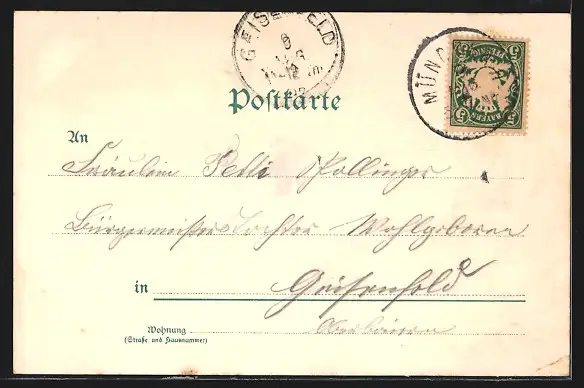 GEISENFELD
8
MÜNC
BAYERN
5
Postkarte
An
Fräulein Petti Pollinger
Bürgermeisters Tochter Wohlgeboren
in Geisenfeld
Oberbaiern
Wohnung
(Straße und Hausnummer)